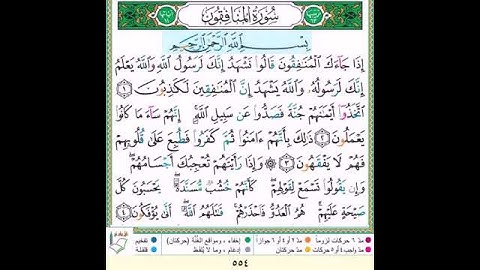 سُورَةُ المُنَافِقُونَ
بِسْمِ ٱللَّهِ ٱلرَّحْمَٰنِ ٱلرَّحِيمِ
إِذَا جَآءَكَ ٱلْمُنَٰفِقُونَ قَالُوا۟ نَشْهَدُ إِنَّكَ لَرَسُولُ ٱللَّهِ وَٱللَّهُ يَعْلَمُ
إِنَّكَ لَرَسُولُهُۥ وَٱللَّهُ يَشْهَدُ إِنَّ ٱلْمُنَٰفِقِينَ لَكَٰذِبُونَ ١
ٱتَّخَذُوٓا۟ أَيْمَٰنَهُمْ جُنَّةً فَصَدُّوا۟ عَن سَبِيلِ ٱللَّهِ ۚ إِنَّهُمْ سَآءَ مَا كَانُوا۟
يَعْمَلُونَ ٢ ذَٰلِكَ بِأَنَّهُمْ ءَامَنُوا۟ ثُمَّ كَفَرُوا۟ فَطُبِعَ عَلَىٰ قُلُوبِهِمْ
فَهُمْ لَا يَفْقَهُونَ ٣ ۞ وَإِذَا رَأَيْتَهُمْ تُعْجِبُكَ أَجْسَامُهُمْ ۖ
وَإِن يَقُولُوا۟ تَسْمَعْ لِقَوْلِهِمْ ۖ كَأَنَّهُمْ خُشُبٌ مُّسَنَّدَةٌ ۖ يَحْسَبُونَ كُلَّ
صَيْحَةٍ عَلَيْهِمْ ۚ هُمُ ٱلْعَدُوُّ فَٱحْذَرْهُمْ ۚ قَٰتَلَهُمُ ٱللَّهُ ۖ أَنَّىٰ يُؤْفَكُونَ ٤
مدّ ٦ حركات لزوماً مدّ ٢ أو ٤ أو ٦ جوازاً إخفاء، ومواقع الغُنَّة (حركتان) تفخيم
مدّ واجب ٤ أو ٥ حركات مدّ حركتان إدغام، وما لا يُلفَظ قلقلة
٥٥٤